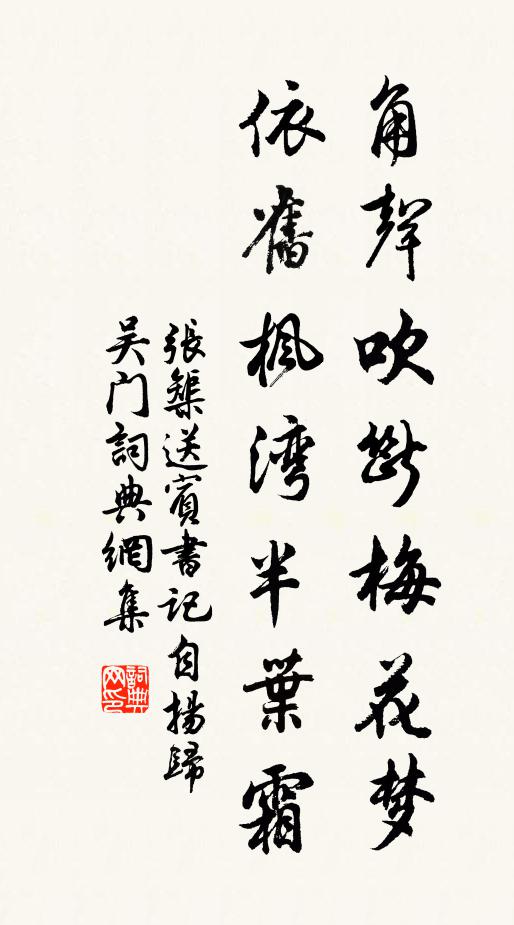 角聲吹斷梅花梦
依舊楓湾半葉霜
張榘送賓書記自揚歸
吴门詞典網集
詞典网印